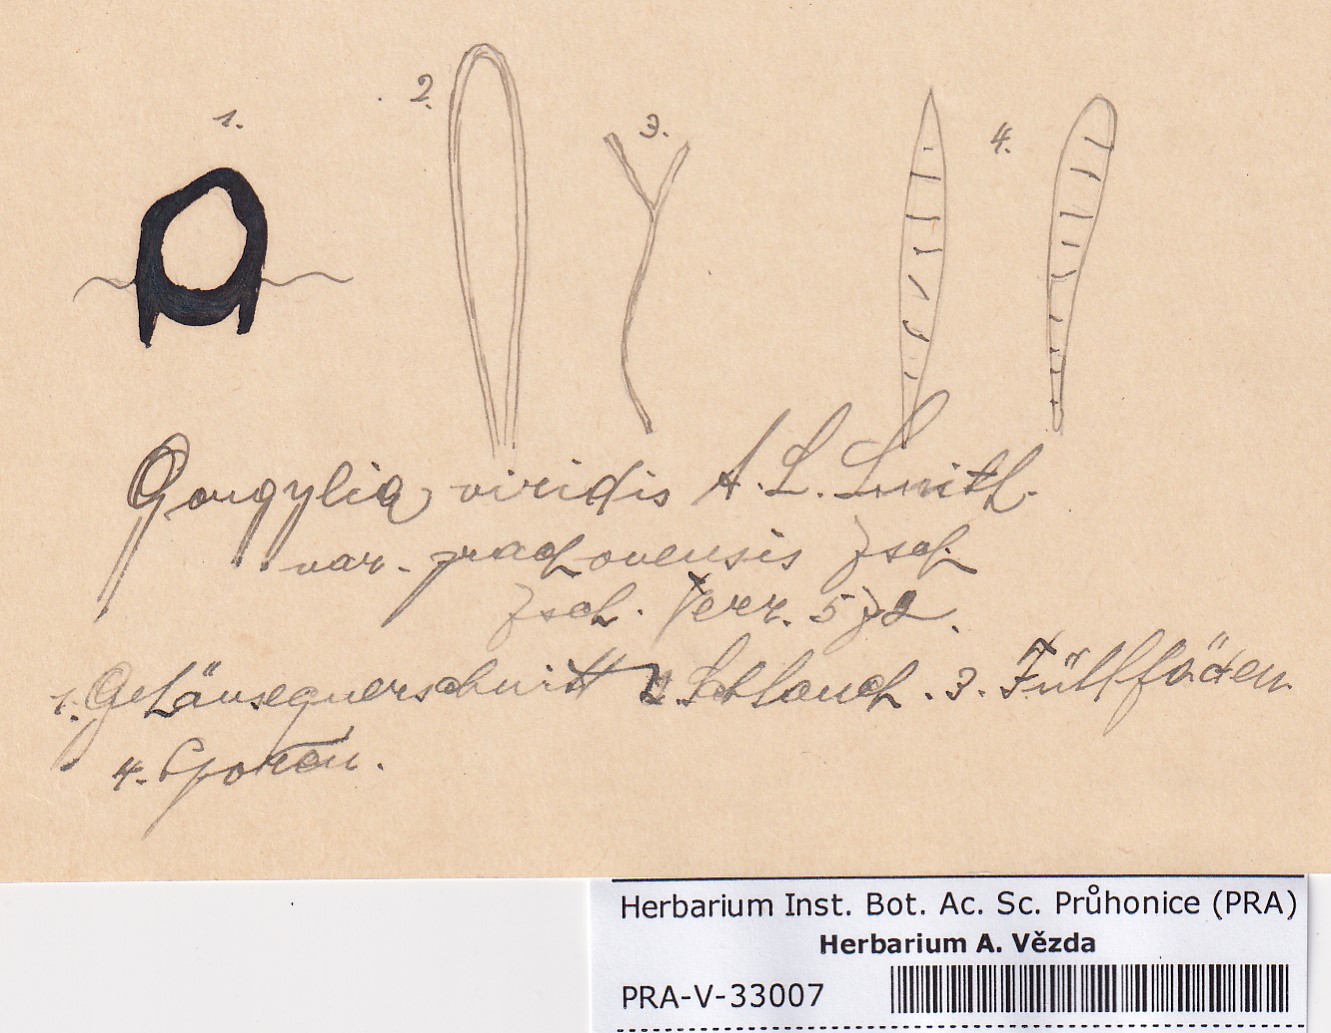 1.
2.
3.
4.
Gongylia viridis A. L. Smith.
var. prachovensis Zsch.
Zsch. Verr. 572.
1. Gehäusequerschnitt 2. Schlauch. 3. Füllfäden
4. Sporen.
Herbarium Inst. Bot. Ac. Sc. Průhonice (PRA)
Herbarium A. Vězda
PRA-V-33007